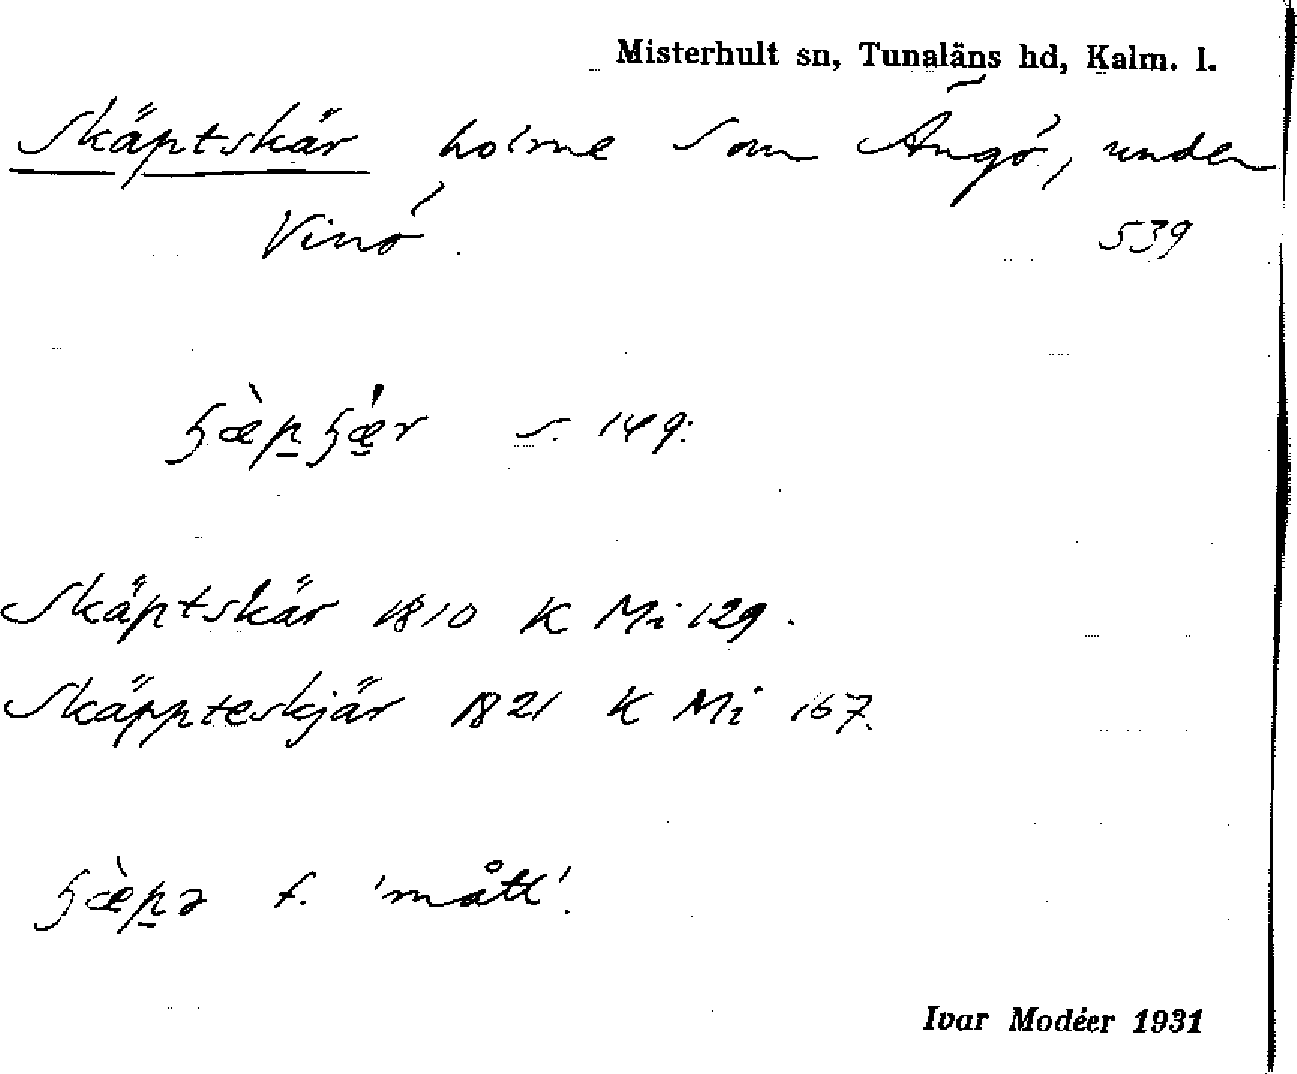 Misterhult sn, Tunaläns hd, Kalm. l.
Skäptskär holme S om Ängö, under
Vinö. 539
s. 149.
Skäptskär 1810 K Mi 129.
Skäppteskjär 1821 K Mi 167.
f. 'mått'.
Ivar Modéer 1931